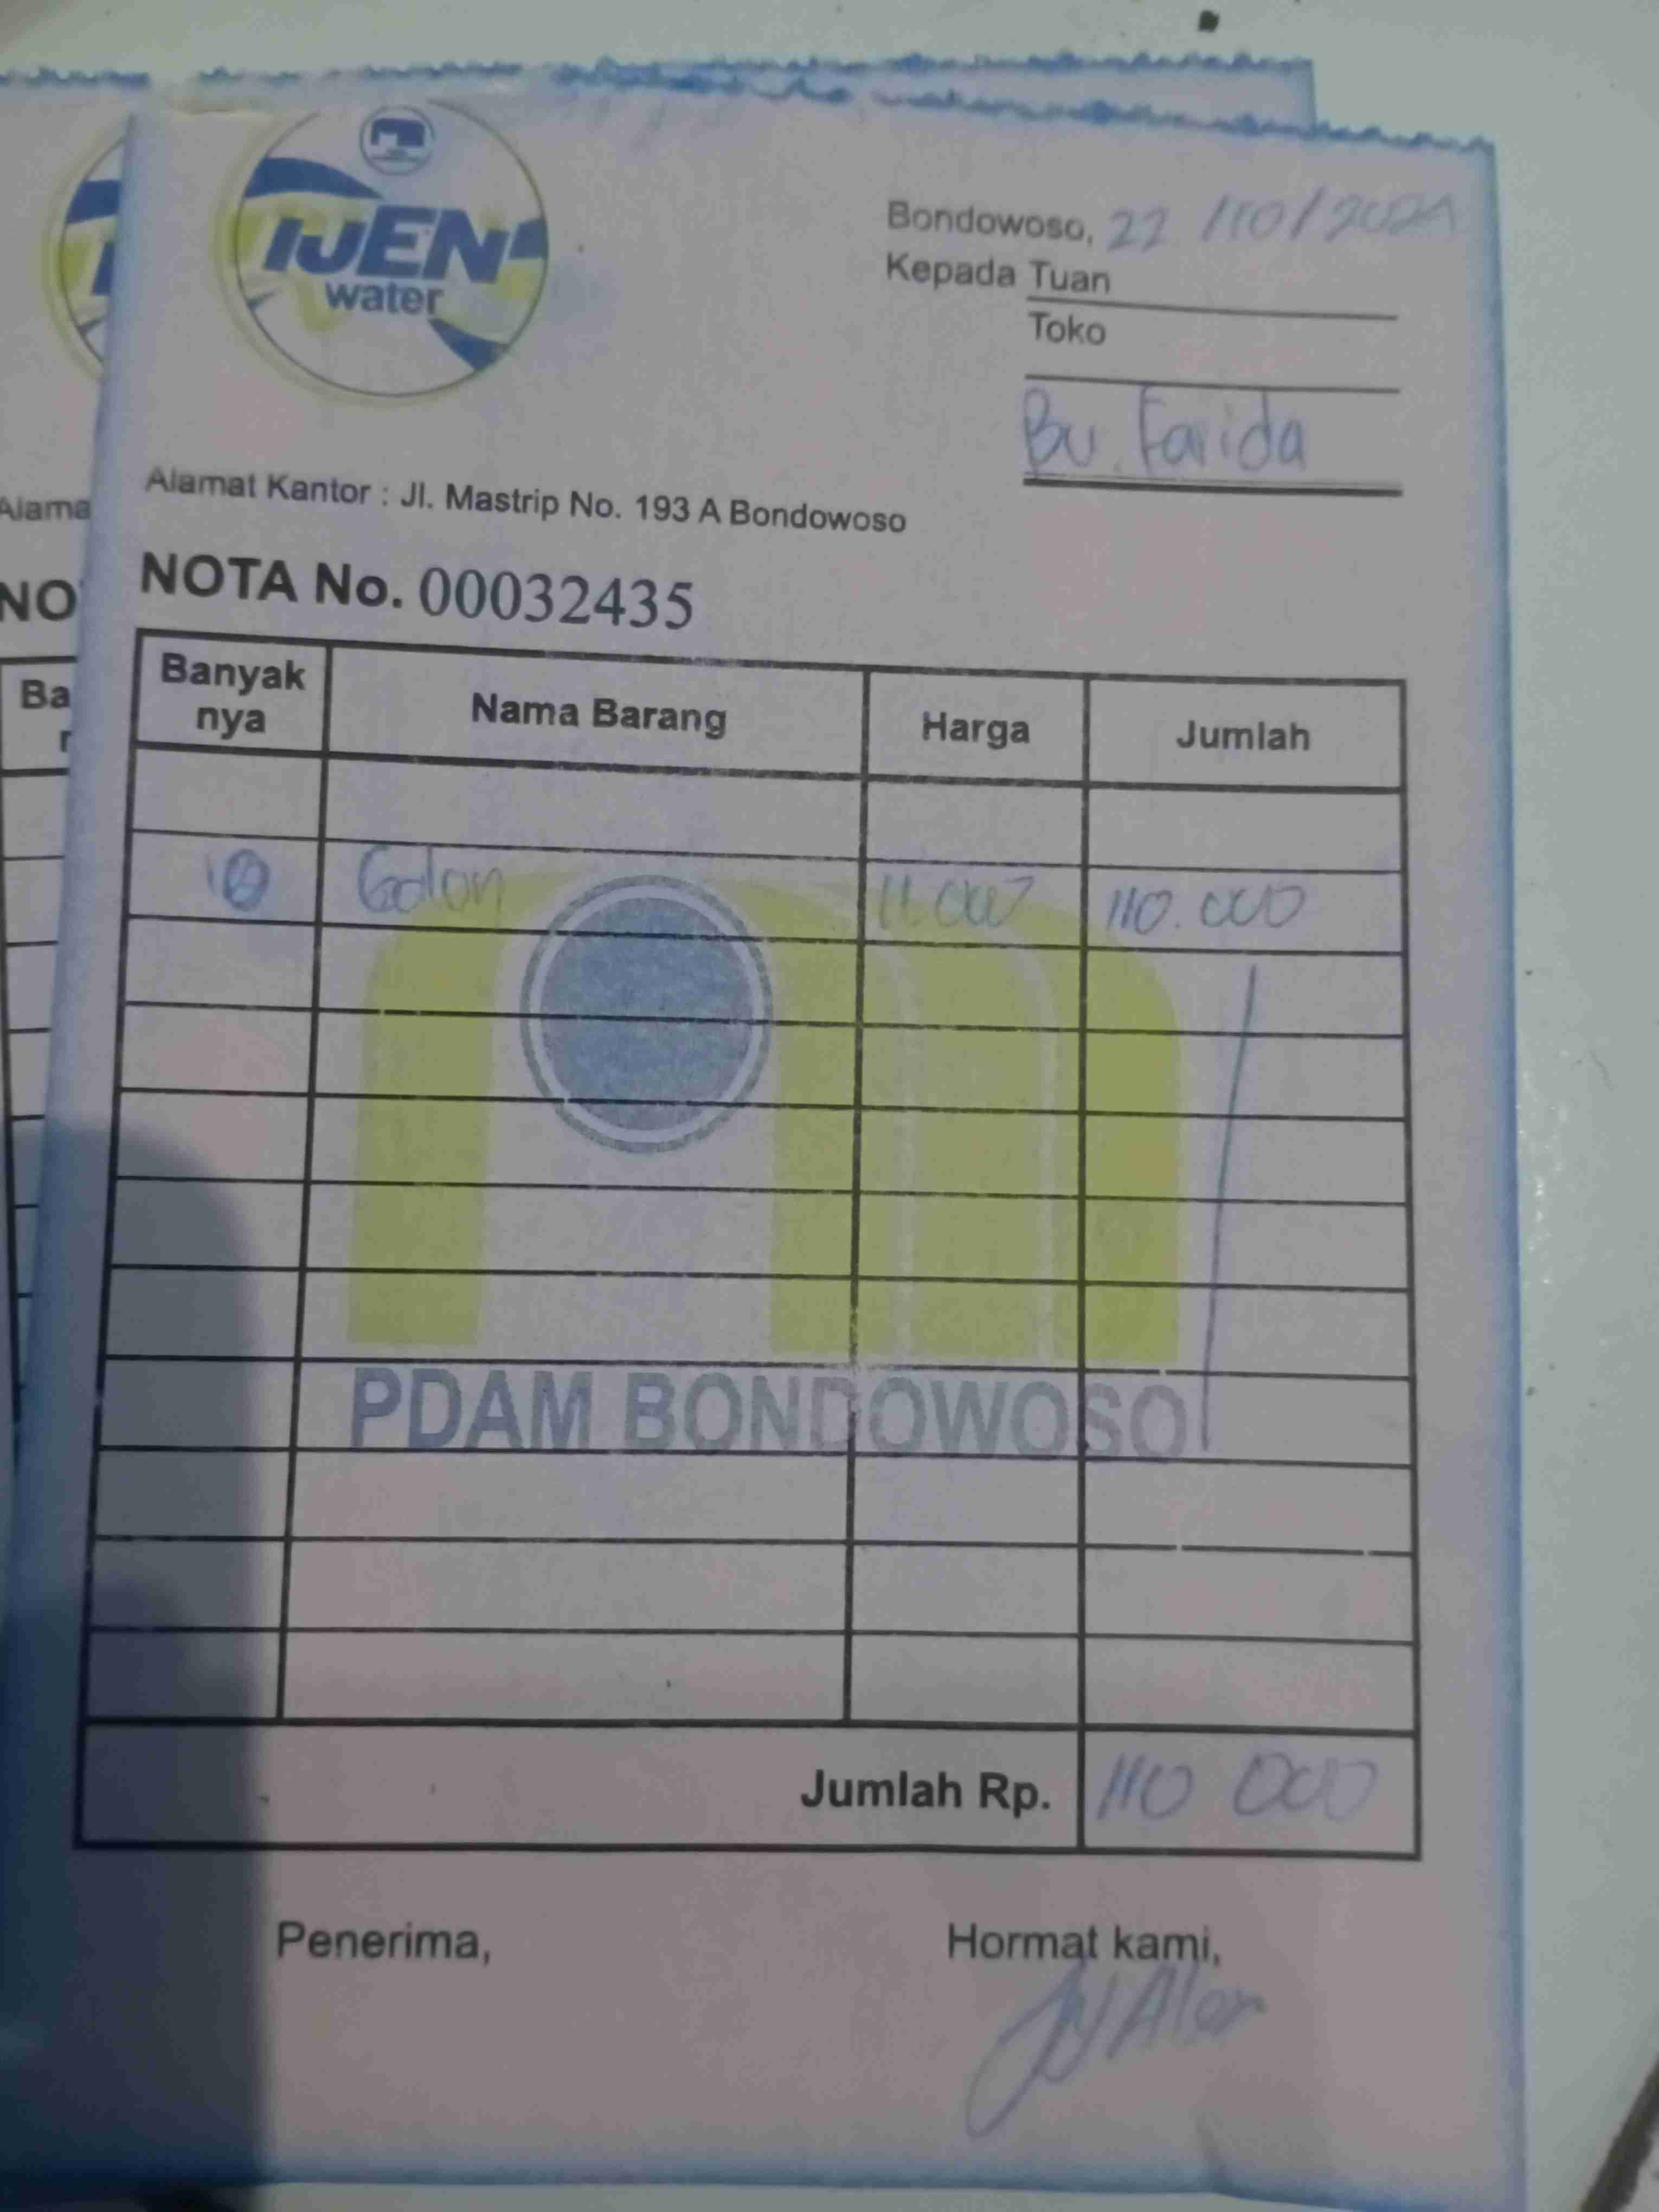 IJEN
water
Bondowoso, 22/10/2021
Kepada Tuan
Toko
Bu. Farida
Alamat Kantor : Jl. Mastrip No. 193 A Bondowoso
NOTA No. 00032435
Banyak nya Nama Barang Harga Jumlah
10 Galon 11.000 110.000
PDAM BONDOWOSO
Jumlah Rp. 110 000
Penerima, Hormat kami,
Alama
NO
Ba